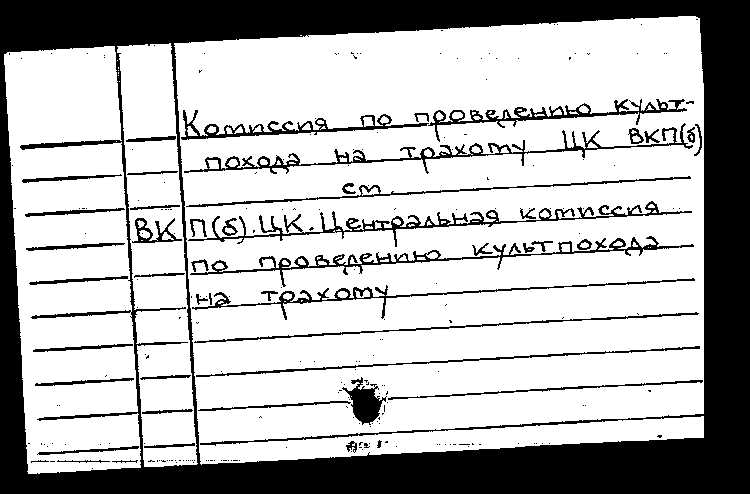 Комиссия по проведению культ-
похода на трахому ЦК ВКП(б)
см.
ВКП(б). ЦК. Центральная комиссия
по проведению культпохода
на трахому